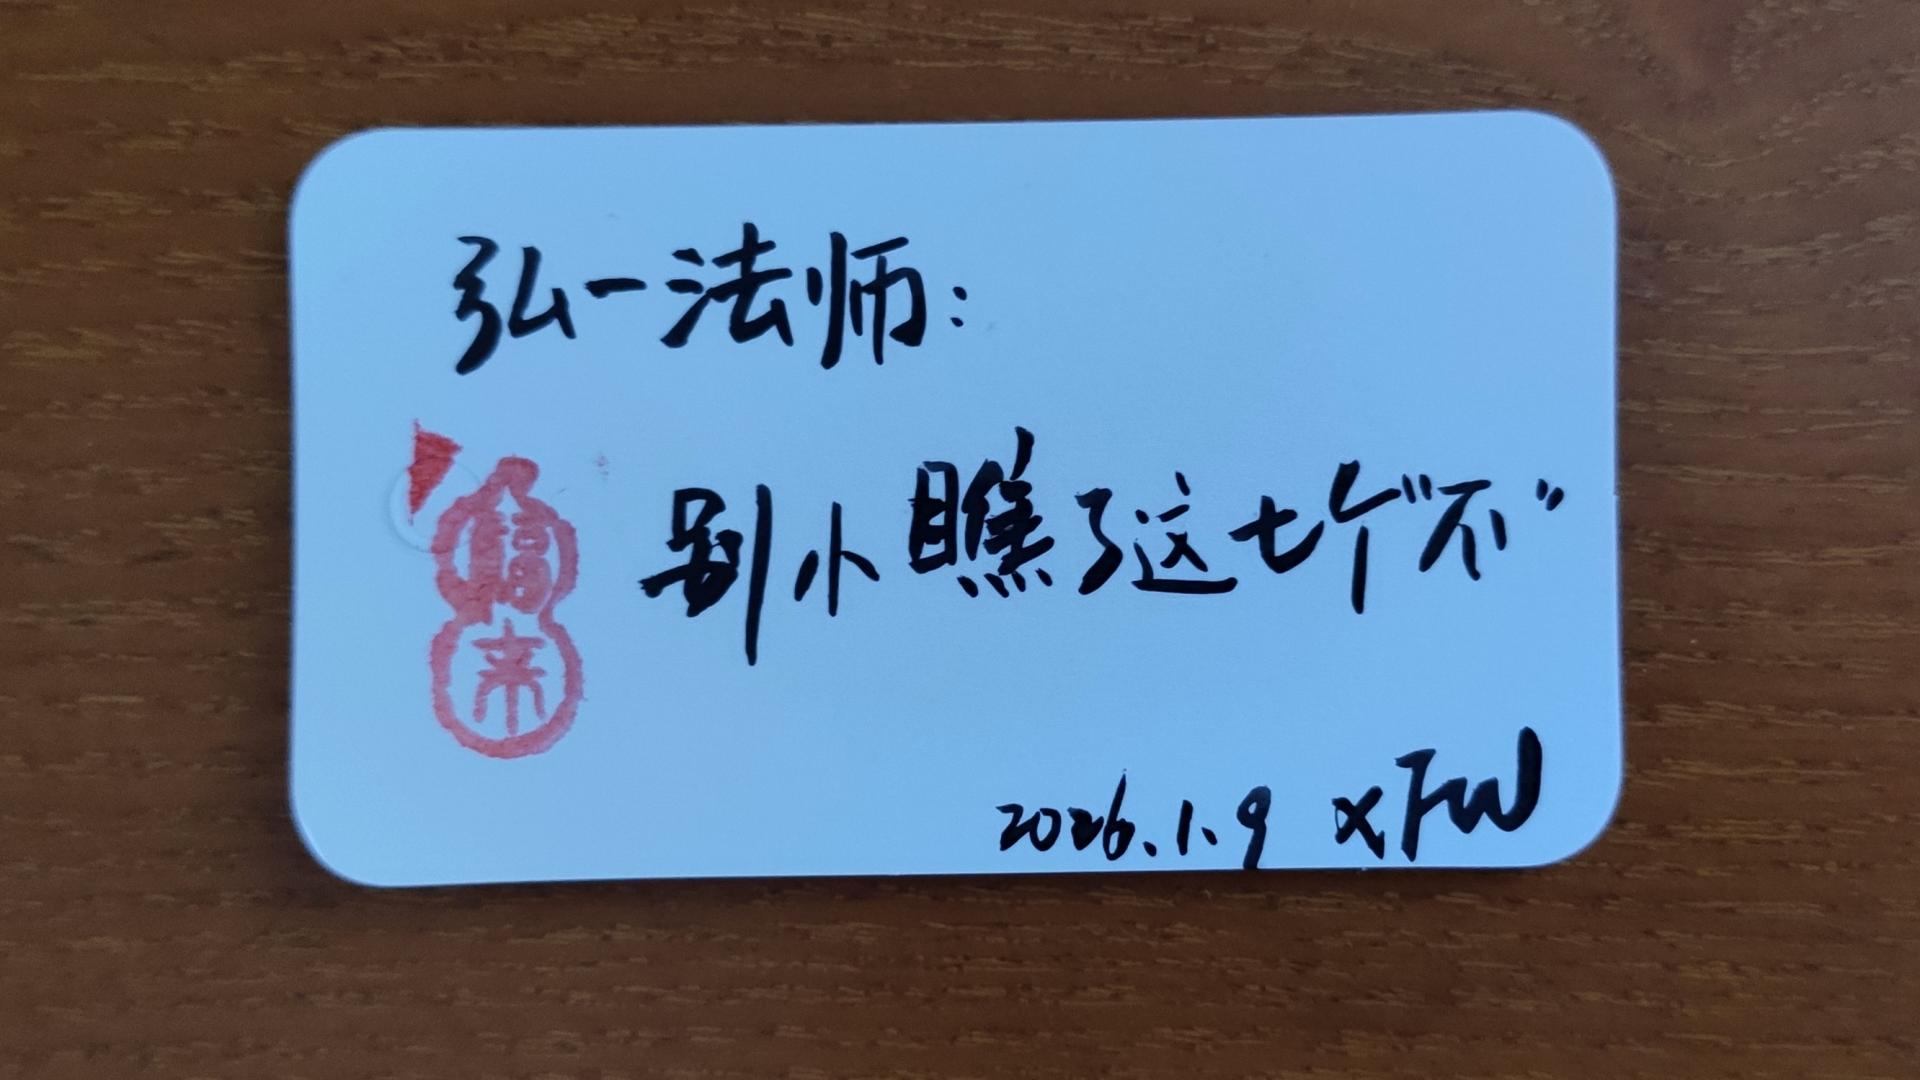 弘一法师:
别小瞧了这七个"不"
福
来
2026.1.9 XFW